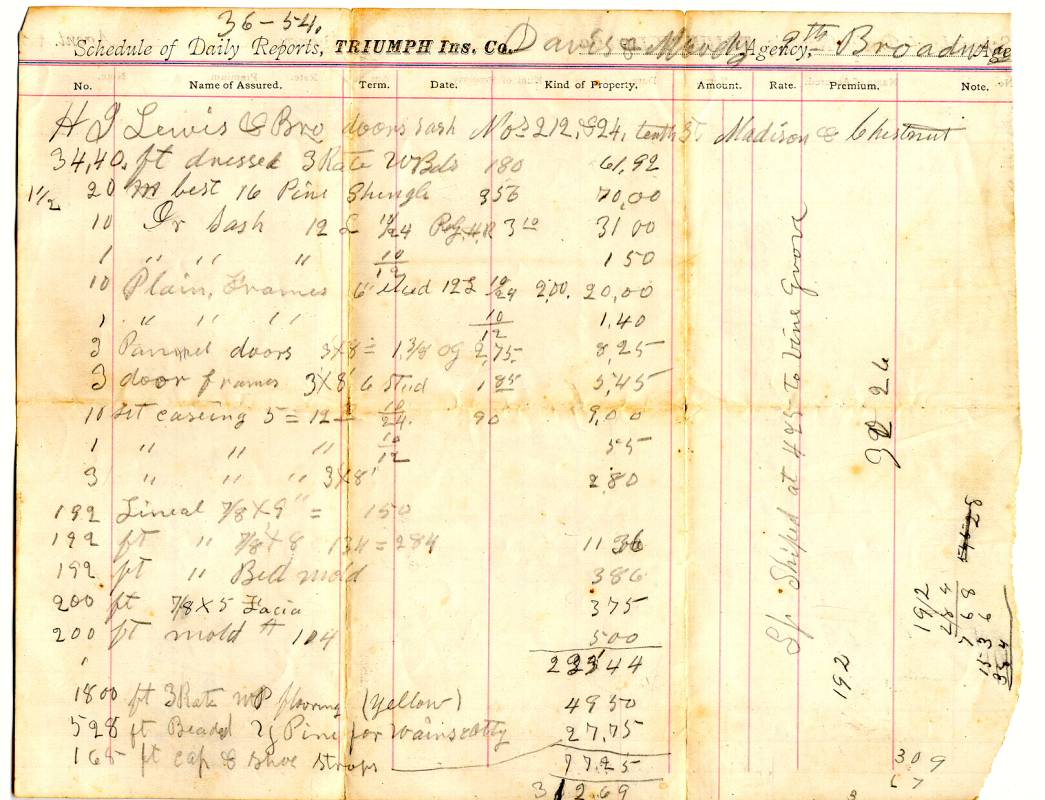 36-54.
Schedule of Daily Reports, TRIUMPH Ins. Co. Davis & Moody Agency, 9th Broadway Age
No. Name of Assured. Term. Date. Kind of Property. Amount. Rate. Premium. Note.
H J Lewis & Bro doors sash Nos 212, & 24, tenth St Madison & Chestnut
34,40, ft dressed 3 Rate W Bds 180 61,92
20 m best 16 Pine Shingle 350 70,00
10 Or Sash 12 L 10/24 3 10 31 00
1 " " " 10/12 1 50
10 Plain, Frames 6" stud 12 L 10/24 200. 20,00
1 " " " 10/12 1.40
3 Pannel doors 3X8 = 1 3/8 og 2,75 8,25
3 door frames 3X8' 6 Stud 1 85 5,45
10 set caseing 5 = 12 10/24. 90 9,00
1 " " " 10/12 55
3 " " " 3X8' 2.80
192 Lineal 7/8 X 9" = 150
192 ft " 7/8 X 8 134 = 284 11 36
192 ft " Bed mold 386
200 ft 7/8 X 5 Facia 375
200 ft mold # 104 500
233 44
1800 ft 3 Rate WP flooring (Yellow) 49 50
528 ft Beaded Yg Pine for Wainscotty 27.75
165 ft cap & shoe Strops 77.25
3 12 69
Shiped at 425 to Vine Grove
26
192
28
192
284
768
1536
384
309
67
3